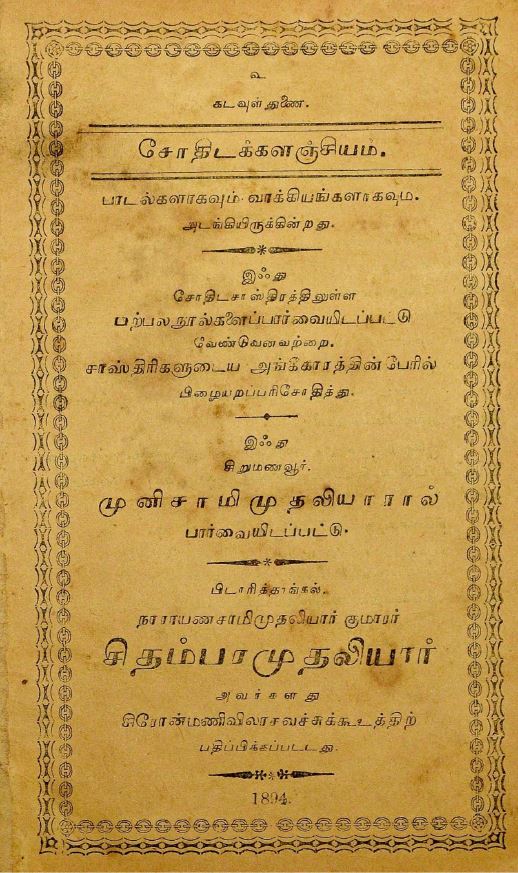 உ
கடவுள் துணை.
சோதிடக்களஞ்சியம்.
பாடல்களாகவும் வாக்கியங்களாகவும்.
அடங்கியிருக்கின்றது.
இஃது
சோதிடசாஸ்திரத்திலுள்ள
பற்பலநூல்களைப்பார்வையிடப்பட்டு
வேண்டுவனவற்றை.
சாஸ்திரிகளுடைய அங்கீகாரத்தின்பேரில்
பிழையறப்பரிசோதித்து.
இஃது
சிறுமணவூர்.
முனிசாமிமுதலியாரால்
பார்வையிடப்பட்டு.
பிடாரித்தாங்கல்.
நாராயணசாமிமுதலியார் குமாரர்
சிதம்பரமுதலியார்
அவர்களது
சிரோன்மணிவிலாசவச்சுக்கூடத்திற்
பதிப்பிக்கப்பட்டது.
1894.